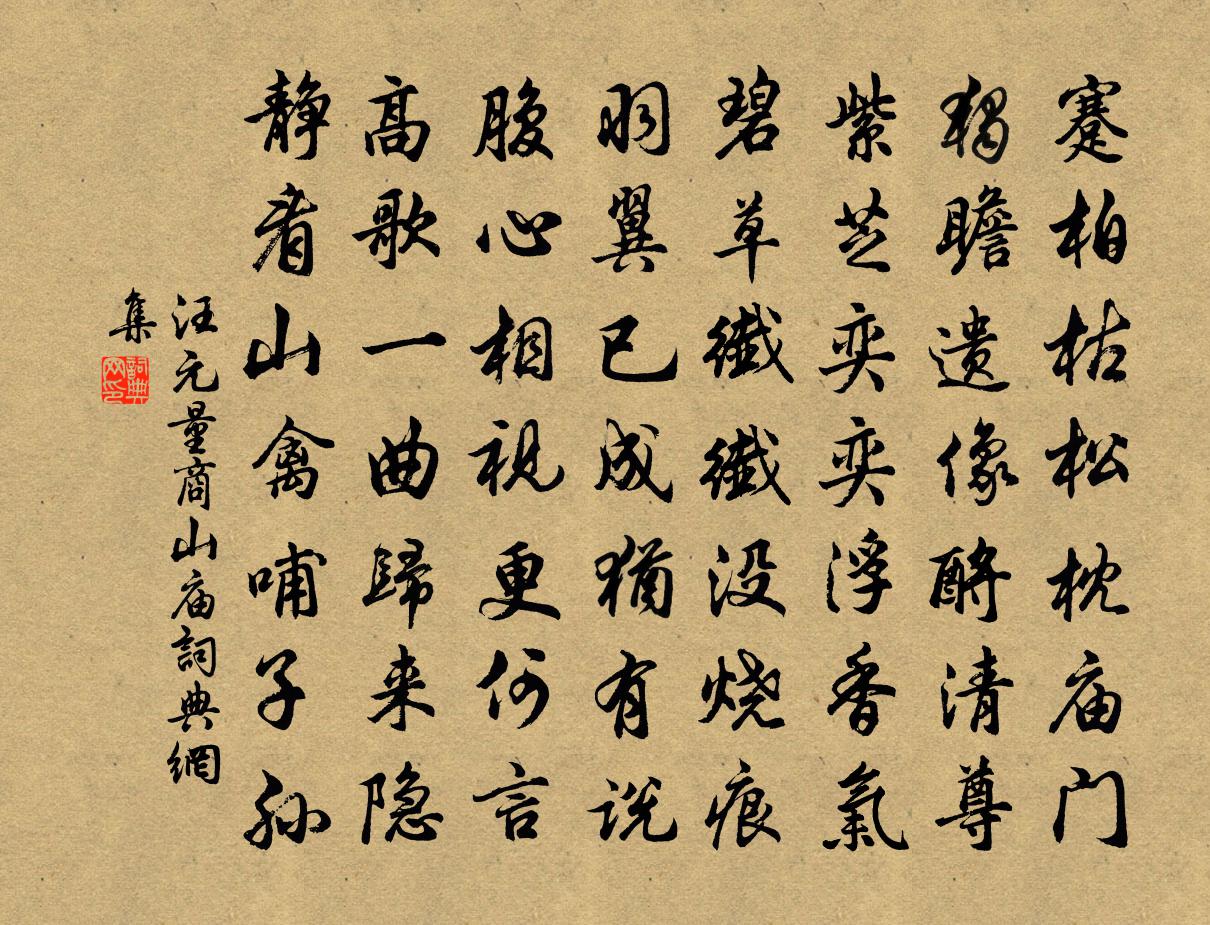 蹇柏枯松枕庙门
独瞻遗像酹清尊
紫芝奕奕浮香氣
碧草纖纖没烧痕
羽翼已成犹有说
腹心相视更何言
高歌一曲歸来隐
静看山禽哺子孙
汪元量商山庙詞典網
集
詞典网印